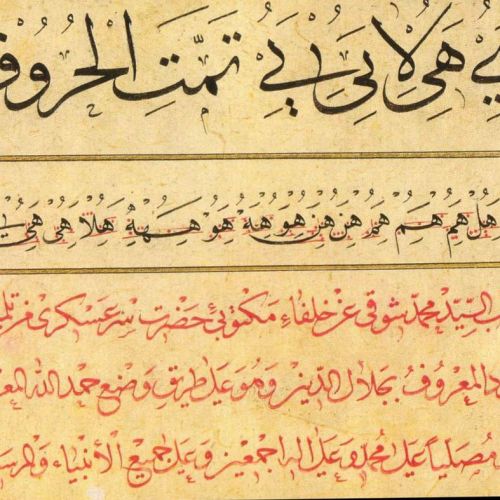 ي هي لا يى يي تمّت الحروف
هل هم هم هم هن هن هو هة هو هـة هلا هى هي
السيّد محمّد شوقى عن خلفاء مكتوبئ حضرت سر عسكرى
المعروف بجلال الدين وهو على طريق وضع حمد الله
مصلياً على محمد وعلى اله اجمعين وعلى جميع الأنبياء والمرسلين